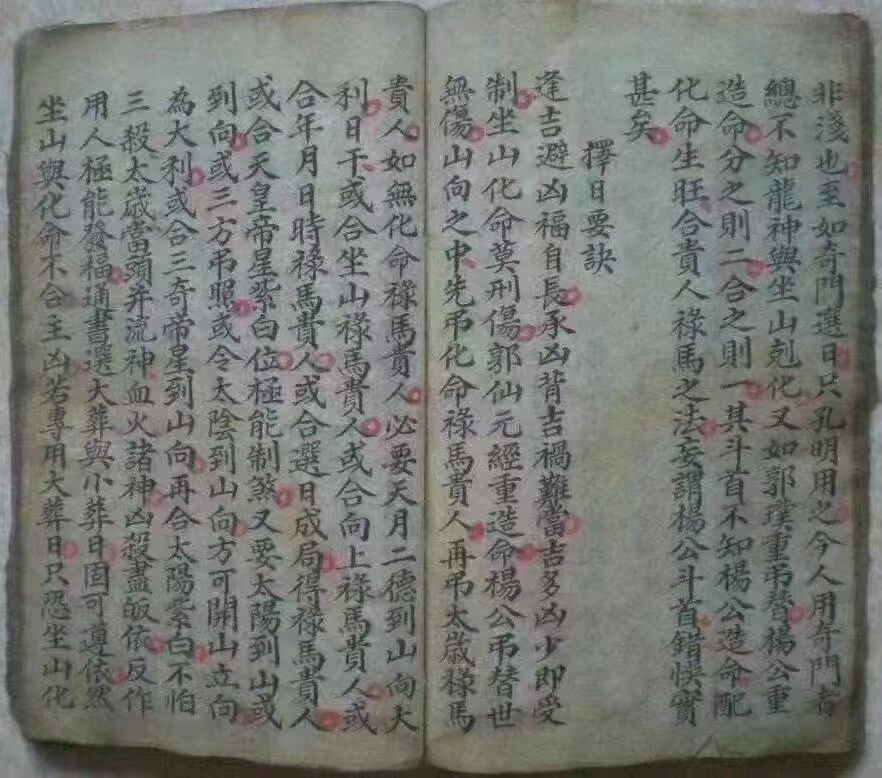 非淺也至如奇門選日只孔明用之今人用奇門者
總不知龍神與坐山剋化又如郭璞重吊替楊公重
造命分之則二合之則一其斗首不知楊公造命配
化命生旺合貴人祿馬之法妄謂楊公斗首錯悞實
甚矣
擇日要訣
逢吉避凶福自長承凶背吉禍難當吉多凶少即受
制坐山化命莫刑傷郭仙元經重造命楊公吊替世
無傷山向之中先吊化命祿馬貴人再吊太歲祿馬
貴人如無化命祿馬貴人必要天月二德到山向大
利日干或合坐山祿馬貴人或合向上祿馬貴人或
合年月日時祿馬貴人或合選日成局得祿馬貴人
或合天皇帝星紫白位極能制煞又要太陽到山或
到向或三方吊照或令太陰到山向方可開山立向
為大利或合三奇帝星到山向再合太陽紫白不怕
三殺太歲當頭并流神血火諸神凶殺盡皈依反作
用人極能發福通書選大葬與小葬日固可遵依然
坐山與化命不合主凶若專用大葬日只恐坐山化